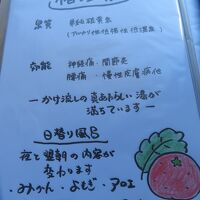 泉質 単純硫黄泉
(アルカリ性低張性低温泉)
効能 神経痛・関節炎
腰痛・慢性皮膚病他
ーかけ流しの真あたらしい湯が
満ちていますー
日替り風呂
夜と翌朝の内容が
変わります
・みかん・よもぎ・アロエ